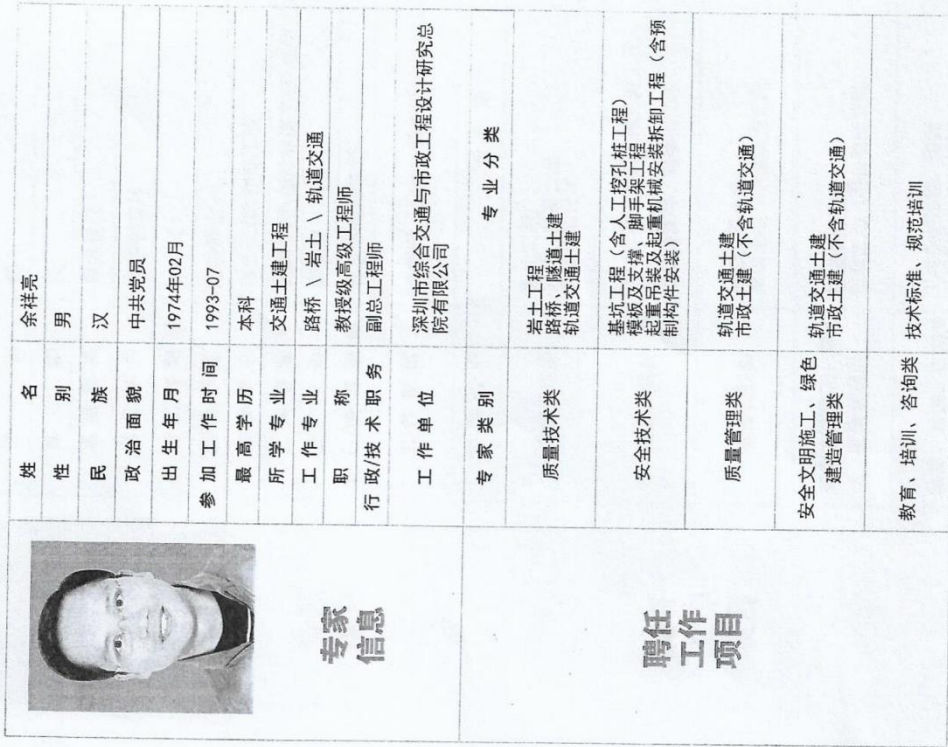 专家
信息
姓名 余祥亮
性别 男
民族 汉
政治面貌 中共党员
出生年月 1974年02月
参加工作时间 1993-07
最高学历 本科
所学专业 交通土建工程
工作专业 路桥 \ 岩土 \ 轨道交通
职称 教授级高级工程师
行政/技术职务 副总工程师
工作单位 深圳市综合交通与市政工程设计研究总
院有限公司
聘任
工作
项目
专家类别 专业分类
质量技术类
岩土工程
路桥、隧道土建
轨道交通土建
安全技术类
基坑工程（含人工挖孔桩工程）
模板及支撑、脚手架工程
起重吊装及起重机械安装拆卸工程（含预
制构件安装）
质量管理类
轨道交通土建
市政土建（不含轨道交通）
安全文明施工、绿色
建造管理类
轨道交通土建
市政土建（不含轨道交通）
教育、培训、咨询类 技术标准、规范培训